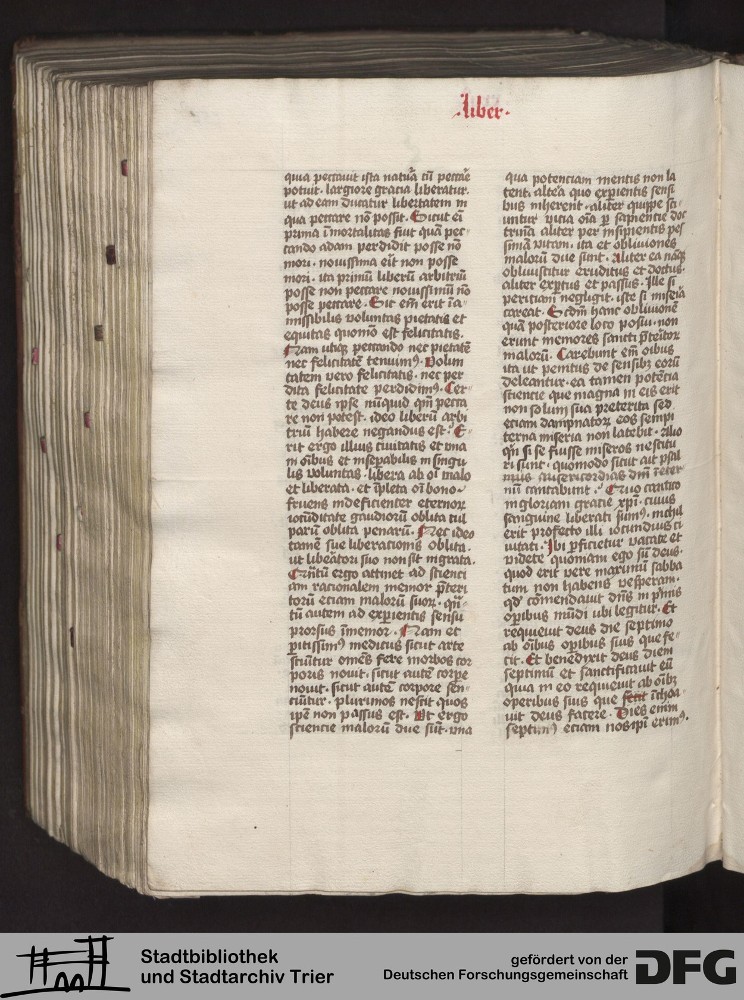 Liber
quia peccauit ista natura cu peccare
potuit. largiore gracia liberatur.
ut ad eam ducatur libertatem in
qua peccare no possit. Sicut ei
prima imortalitas fuit quam pec
cando adam perdidit posse no
mori. nouissima erit non posse
mori. ita primu liberu arbitriu
posse non peccare nouissimu no
posse peccare. Sic em erit ia
missibilis voluntas pietatis et
equitas quomo est felicitatis.
Nam utiqz peccando nec pietate
nec felicitate tenuim9. volun
tatem vero felicitatis. nec per
dita felicitate perdidim9. Cer
te deus ipse nuquid qm pecca
re non potest. ideo liberu arbi
triu habere negandus est. E
rit ergo illius ciuitatis et vna
in oibus et inseparabilis in singu
lis voluntas. libera ab oi malo
et liberata. et ipleta oi bono.
fruens indeficienter eternor
iocuditate gaudioru oblita cul
paru oblita penaru. Nec ideo
tame sue liberacionis oblita.
ut libeatori suo non sit ingrata.
Qntu ergo attinet ad scienci
am racionalem memor preteri
toru eciam maloru suor. qn
tu autem ad experientis sensu
prorsus imemor. Nam et
peritissim9 medicus sicut arte
sciutur omes fere morbos cor
poris nouit. sicut aute corpe
nouit. sicut aute corpore sen
ciutur. plurimos nescit quos
ipe non passus est. Ut ergo
sciencie maloru due sut. vna
qua potenciam mentis non la
tent. altea qua experientis sensi
bus inherent. aliter quippe sci
untur vicia oia per sapiencie doc
trina aliter per insipientis pes
sima vitam. ita et obliuiones
maloru due sunt. Aliter ea naqz
obliuiscitur eruditus et doctus.
aliter expertus et passus. Ille si
periciam negligit. iste si miseria
careat. Secdm hanc obliuione
qua posteriore loco posui. non
erunt memores sancti preteritor
maloru. Carebunt em oibus
ita ut penitus de sensibz eoru
deleantur. ea tamen potecia
sciencie que magna in eis erit
non solum sua preterita sed
eciam dampnator eos sempi
terna miseria non latebit. Alio
qn si se fuisse miseros nescitu
ri sunt. quomodo sicut ait psal
mus misericordias dni in eter
nu cantabunt. Quo cantico
in gloriam gracie xpi. cuius
sanguine liberati sum9. nichil
erit profecto illi iocundius ci
uitati. Ibi perficietur vacate et
videte quoniam ego su deus.
quod erit vere maximu sabba
tum non habens vesperam.
qd comendauit dns in primis
operibus mudi ubi legitur. Et
requieuit deus die septimo
ab oibus operibus suis que fe
cit. Et benedixit deus diem
septimu et sanctificauit eu
quia in eo requieuit ab oibz
operibus suis que fecit ichoa
uit deus facere. Dies enim
septim9 eciam nos ipi erim9.
Stadtbibliothek
und Stadtarchiv Trier
gefördert von der
Deutschen Forschungsgemeinschaft
DFG